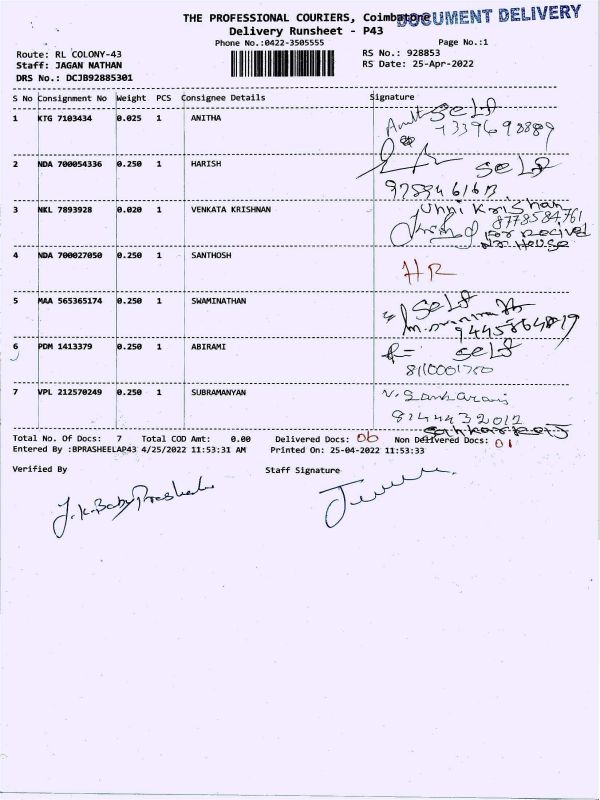 THE PROFESSIONAL COURIERS, Coimbatore
DOCUMENT DELIVERY
Delivery Runsheet - P43
Phone No.:0422-3505555 Page No.:1
Route: RL COLONY-43 RS No.: 928853
Staff: JAGAN NATHAN RS Date: 25-Apr-2022
DRS No.: DCJB92885301
S No Consignment No Weight PCS Consignee Details Signature
1 KTG 7103434 0.025 1 ANITHA SELF
2 NDA 700054336 0.250 1 HARISH SELF
3 NKL 7893928 0.020 1 VENKATA KRISHNAN Unni Krishnan
8778584761
For Recived
Nr. House
4 NDA 700027050 0.250 1 SANTHOSH HR
5 MAA 565365174 0.250 1 SWAMINATHAN SELF
6 PDM 1413379 0.250 1 ABIRAMI SELF
7 VPL 212570249 0.250 1 SUBRAMANYAN
Total No. Of Docs: 7 Total COD Amt: 0.00 Delivered Docs: 06 Non Delivered Docs: 01
Entered By :BPRASHEELAP43 4/25/2022 11:53:31 AM Printed On: 25-04-2022 11:53:33
Verified By Staff Signature